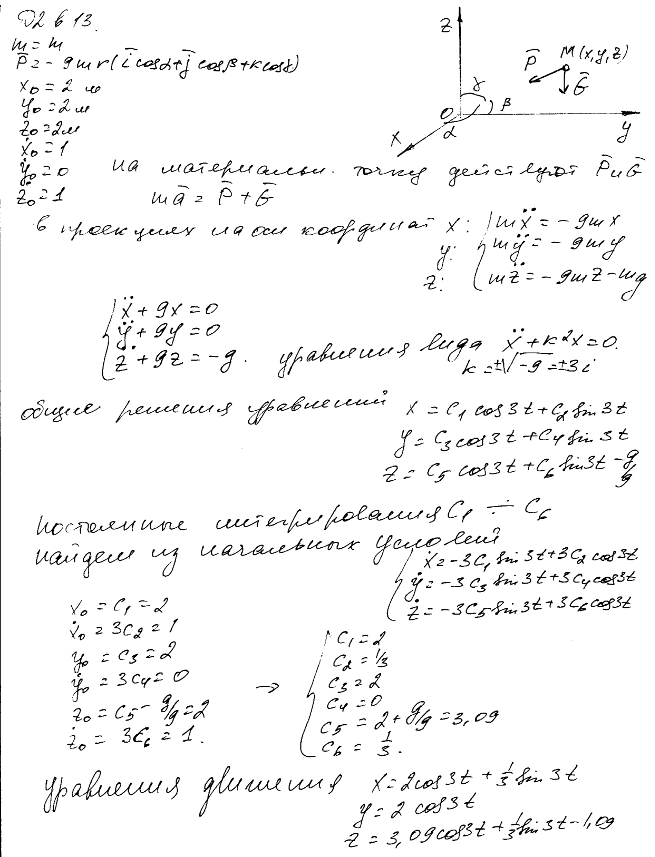 D2 в 13.
m = m
P̄ = -9mr(īcosα+j̄cosβ+k̄cosγ)
x₀ = 2 м
y₀ = 2 м
z₀ = 2 м
ẋ₀ = 1
ẏ₀ = 0
ż₀ = 1
z
P̄ M(x,y,z)
Ḡ
γ
O β
α
x y
на материальн. точку действуют P̄ и Ḡ
mā = P̄ + Ḡ
в проекциях на оси координат x: mẍ = -9mx
y: mÿ = -9my
z: mz̈ = -9mz - mg
ẍ + 9x = 0
ÿ + 9y = 0
z̈ + 9z = -g. уравнения вида ẍ + k²x = 0.
k = ±√-9 = ±3i
общие решения уравнений x = C₁ cos3t + C₂ sin3t
y = C₃ cos3t + C₄ sin3t
z = C₅ cos3t + C₆ sin3t - g/9
постоянные интегрирования C₁ ÷ C₆
найдем из начальных условий
ẋ = -3C₁ sin3t + 3C₂ cos3t
ẏ = -3C₃ sin3t + 3C₄ cos3t
ż = -3C₅ sin3t + 3C₆ cos3t
x₀ = C₁ = 2
ẋ₀ = 3C₂ = 1
y₀ = C₃ = 2
ẏ₀ = 3C₄ = 0
z₀ = C₅ - g/9 = 2
ż₀ = 3C₆ = 1.
→
C₁ = 2
C₂ = 1/3
C₃ = 2
C₄ = 0
C₅ = 2 + g/9 = 3,09
C₆ = 1/3.
уравнения движения x = 2cos3t + 1/3 sin3t
y = 2 cos3t
z = 3,09cos3t + 1/3 sin3t - 1,09